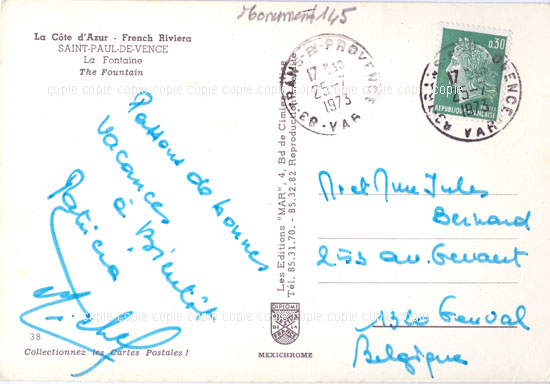 Monument 145
La Côte d'Azur - French Riviera
SAINT-PAUL-DE-VENCE
La Fontaine
The Fountain
PROVENCE
17 H30
25-7
1973
83
VAR
0,30
REPUBLIQUE FRANÇAISE
PROVENCE
17
25-7
1973
83
VAR
copie copie copie copie copie copie copie copie copie copie copie
Passons de bonnes
vacances
à Bientôt
Patricia
Michel
Les Editions "MAR", 4, Bd de Cimiez
Tél. 85.31.70. - 85.32.82 Reproduction
Mr et Mme Jules
Bernard
255 av. Gevaert
1320 Genval
Belgique
38
Collectionnez les Cartes Postales !
MEXICHROME